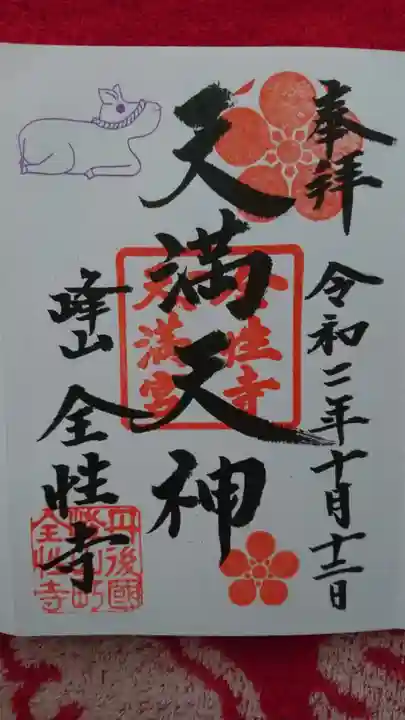 奉拝
令和二年十月十二日
天満天神
全性寺
天満宮
峰山 全性寺
丹後國
全性寺